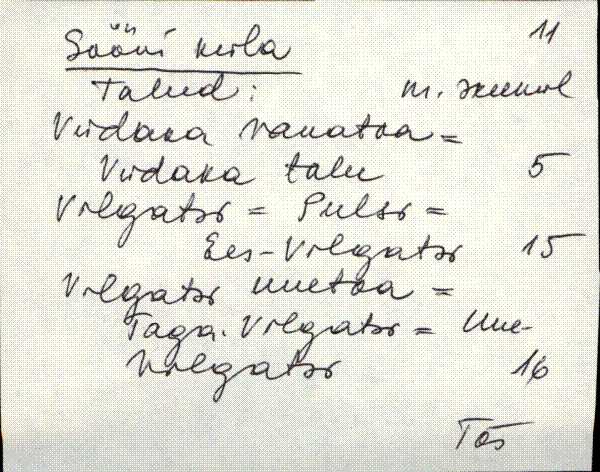 11
Sööni küla
Talud:
Viidaka vanatoa =
Viidaka talu 5
Vilgatsr = Pulsr =
Ees-Vilgatsr 15
Vilgatsr uuetoa =
Taga-Vilgatsr = Uue-
Vilgatsr 16
Tõs